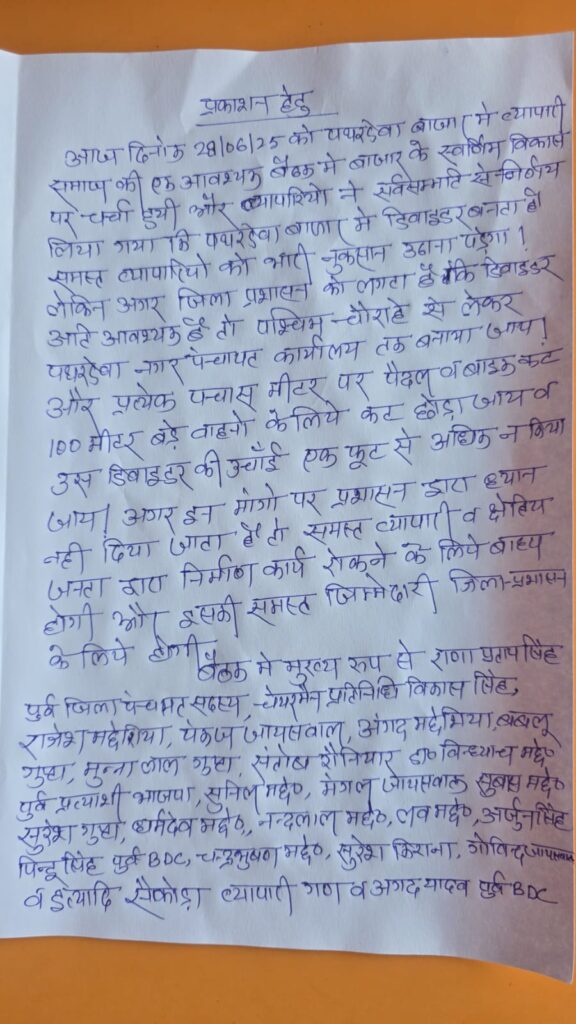 प्रकाशन हेतु
आज दिनांक 28/06/25 को पथरदेवा बाजार मे व्यापारी
समाज की एक आवश्यक बैठक मे बाजार के स्वर्णिम विकास
पर चर्चा हुयी और व्यापारियो ने सर्वसम्मति से निर्णय
लिया गया कि पथरदेवा बाजार मे डिवाइडर बनता है
समस्त व्यापारियो को भारी नुकसान उठाना पड़ेगा!
लेकिन अगर जिला प्रशासन को लगता है कि डिवाइडर
अति आवश्यक है तो पश्चिम चौराहे से लेकर
पथरदेवा नगर पंचायत कार्यालय तक बनाया जाय!
और प्रत्येक पचास मीटर पर पैदल व बाइक कट
100 मीटर बड़े वाहनो के लिये कट छोड़ा जाय व
उस डिवाइडर की उचाँई एक फूट से अधिक न किया
जाय! अगर इन मांगो पर प्रशासन द्वारा ध्यान
नही दिया जाता है तो समस्त व्यापारी व क्षेत्रिय
जनता द्वारा निर्माण कार्य रोकने के लिये बाध्य
होगी और इसकी समस्त जिम्मेदारी जिला-प्रशासन
के लिये होगी
बैठक मे मुख्य रूप से राणा प्रताप सिंह
पुर्व जिला पंचायत सदस्य, चेयरमैन प्रतिनिधि विकास सिंह,
राजेश मद्देशिया, पंकज जायसवाल, अंगद मद्देशिया, बबलू
गुप्ता, मुन्ना लाल गुप्ता, संतोष रौनियार डा० विन्ध्याच मद्दे०
पुर्व प्रत्याशी भाजपा, सुनिल मद्दे०, मंगल जायसवाल सुबास मद्दे०
सुरेश गुप्ता, धर्मदेव मद्दे०, नन्दलाल मद्दे०, लव मद्दे०, अर्जुन सिंह
पिन्टू सिंह पुर्व BDC, चन्द्रभुषण मद्दे०, सुरेश किराना, गोविन्द जायसवाल
व इत्यादि सैकोड़ा व्यापारी गण व अगद यादव पुर्व BDC